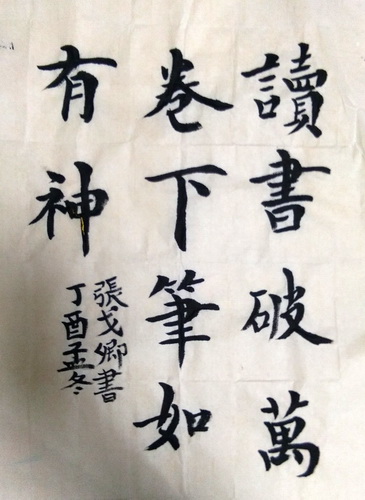 讀書破萬
卷下筆如
有神
張戈卿書
丁酉孟冬